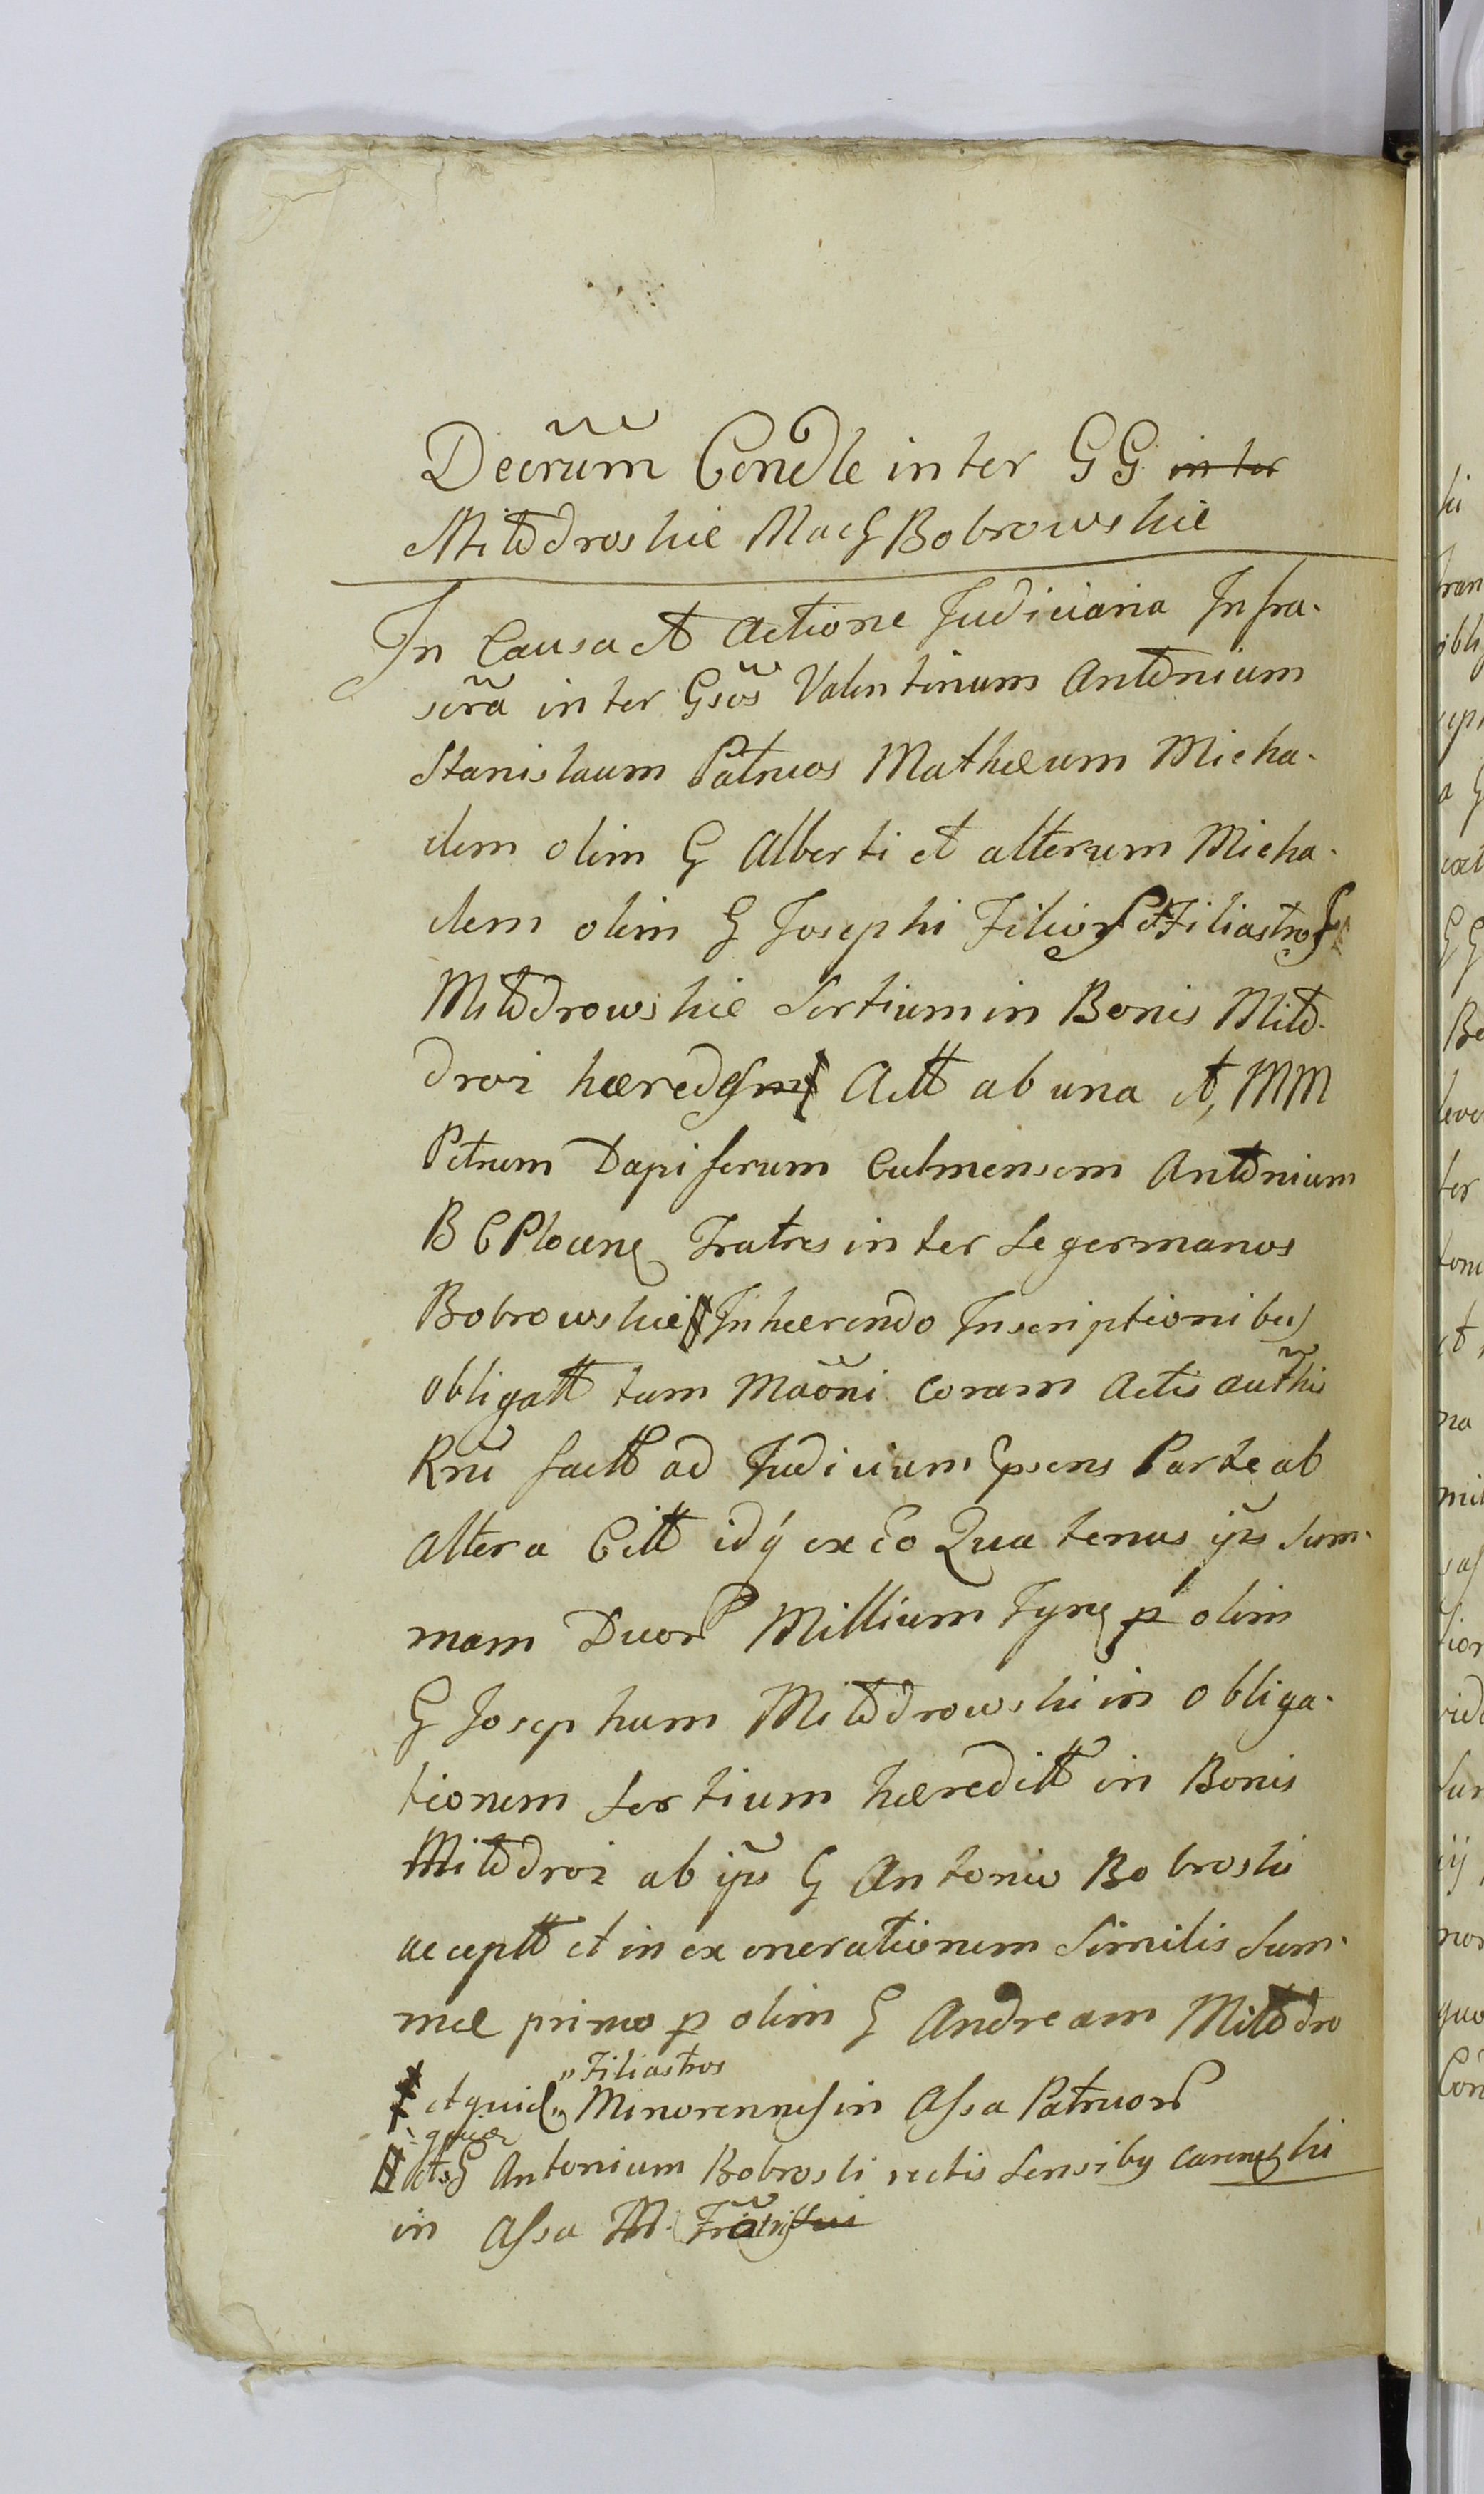 Decrum Condle inter GG inter
Mitodroskie Mac G Bobrowskie
In Causa et Actione Judiciaria Infra-
scra inter Gsos Valentinum Antonium
Stanislaum Patruos Mathæum Micha-
elem olim G Alberti et alterum Micha-
elem olim G Josephi Filios et Filiastros
Mitodrowskie Sortium in Bonis Mito-
droi hæredes Actt ab una et, MM
Petrum Dapiferum Culmensem Antonium
B C Plocens Fratres inter se germanos
Bobrowskie Inhærendo Inscriptionibus
obligatt tum Maoni coram Actis authis
Rni factt ad Judicium psens Parte ab
altera Citt idq ex eo Quatenus ips Sum-
mam Duor Millium Tynf p olim
G Josephum Mitodrowski in obliga-
tionem Sortium hæreditt in Bonis
Mitodroi ab ips G Antonio Bobroski
acceptt et in exonerationem Similis Sum-
mæ primo p olim G Andream Mitodro
Filiastros
et quid Minorennes in Assa Patruor
G Antonium Bobroski rectis Sensibus
in Assa M. Fratris sui
hi